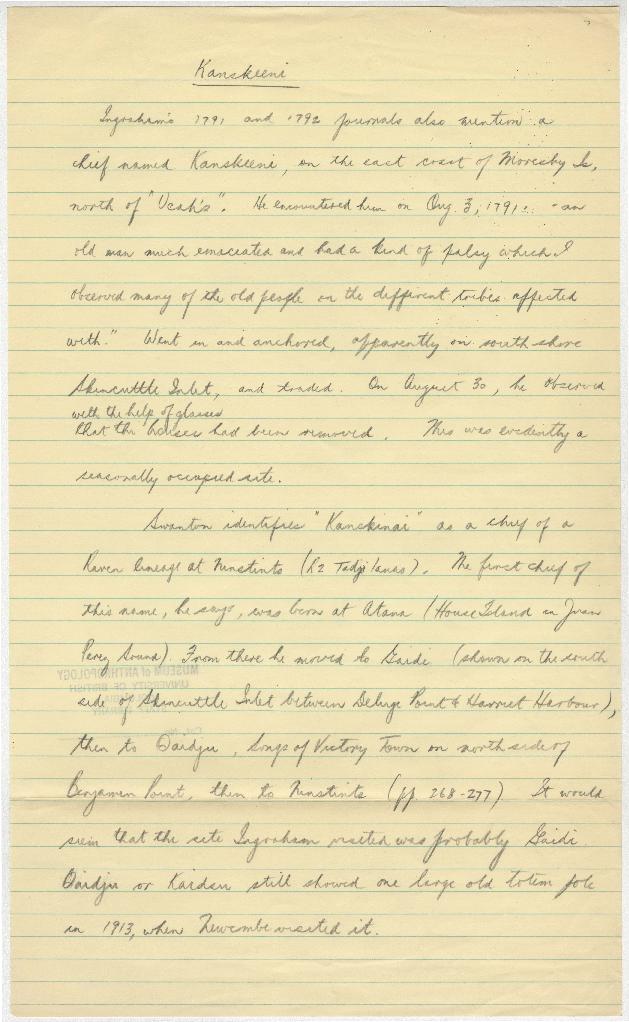 Kanskeeni
Ingraham's 1791 and 1792 journals also mention a
chief named Kanskeeni, on the east coast of Moresby Is,
north of "Ucah's". He encountered him on Aug. 3, 1791: "an
old man much emaciated and had a kind of palsy which I
observed many of the old people on the different tribes affected
with." Went in and anchored, apparently on south shore
Skincuttle Inlet, and traded. On August 30, he observed
with the help of glasses
that the houses had been removed. This was evidently a
seasonally occupied site.
Swanton identifies "Kanskinai" as a chief of a
Raven lineage at Ninstints (R2 Tadji lanas). The first chief of
this name, he says, was born at Atana (House Island in Juan
Perez Sound). From there he moved to Gaidi (shown on the south
side of Skincuttle Inlet between Deluge Point & Harriet Harbour),
then to Qaidju, Songs of Victory Town on north side of
Benjamin Point, then to Ninstints (pp. 268-277). It would
seem that the site Ingraham visited was probably Gaidi.
Qaidju or Kaidsu still showed one large old totem pole
in 1913, when Newcombe visited it.
MUSEUM of ANTHROPOLOGY
UNIVERSITY OF BRITISH